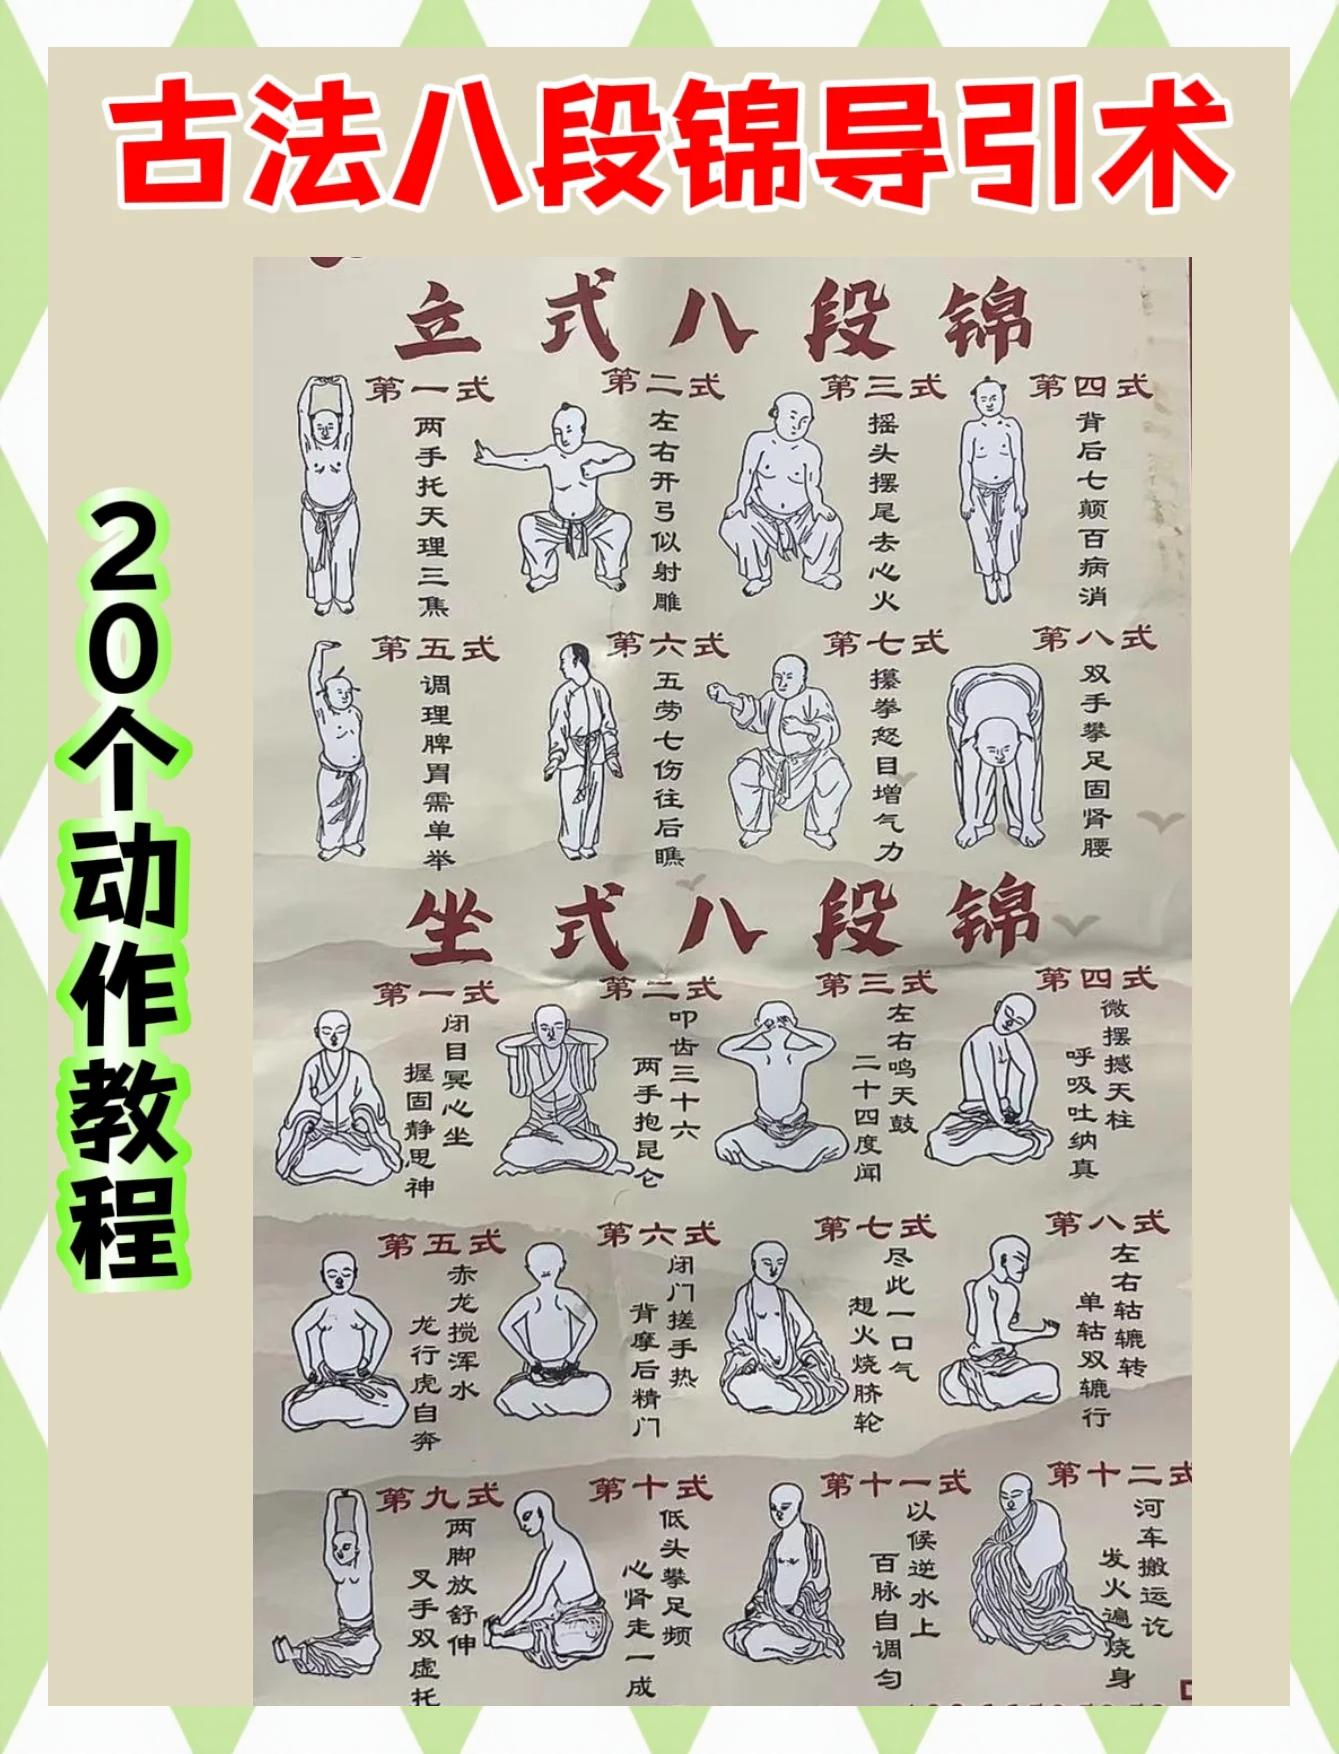 古法八段锦导引术
20个动作教程
立式八段锦
第一式
两手托天理三焦
第二式
左右开弓似射雕
第三式
摇头摆尾去心火
第四式
背后七颠百病消
第五式
调理脾胃需单举
第六式
五劳七伤往后瞧
第七式
攥拳怒目增气力
第八式
双手攀足固肾腰
坐式八段锦
第一式
闭目冥心坐
握固静思神
第二式
叩齿三十六
两手抱昆仑
第三式
左右鸣天鼓
二十四度闻
第四式
微摆撼天柱
呼吸吐纳真
第五式
赤龙搅浑水
龙行虎自奔
第六式
闭门搓手热
背摩后精门
第七式
尽此一口气
想火烧脐轮
第八式
左右轱辘转
单轱双辘行
第九式
两脚放舒伸
叉手双虚托
第十式
低头攀足频
心肾走一成
第十一式
以候逆水上
百脉自调匀
第十二式
河车搬运讫
发火遍烧身